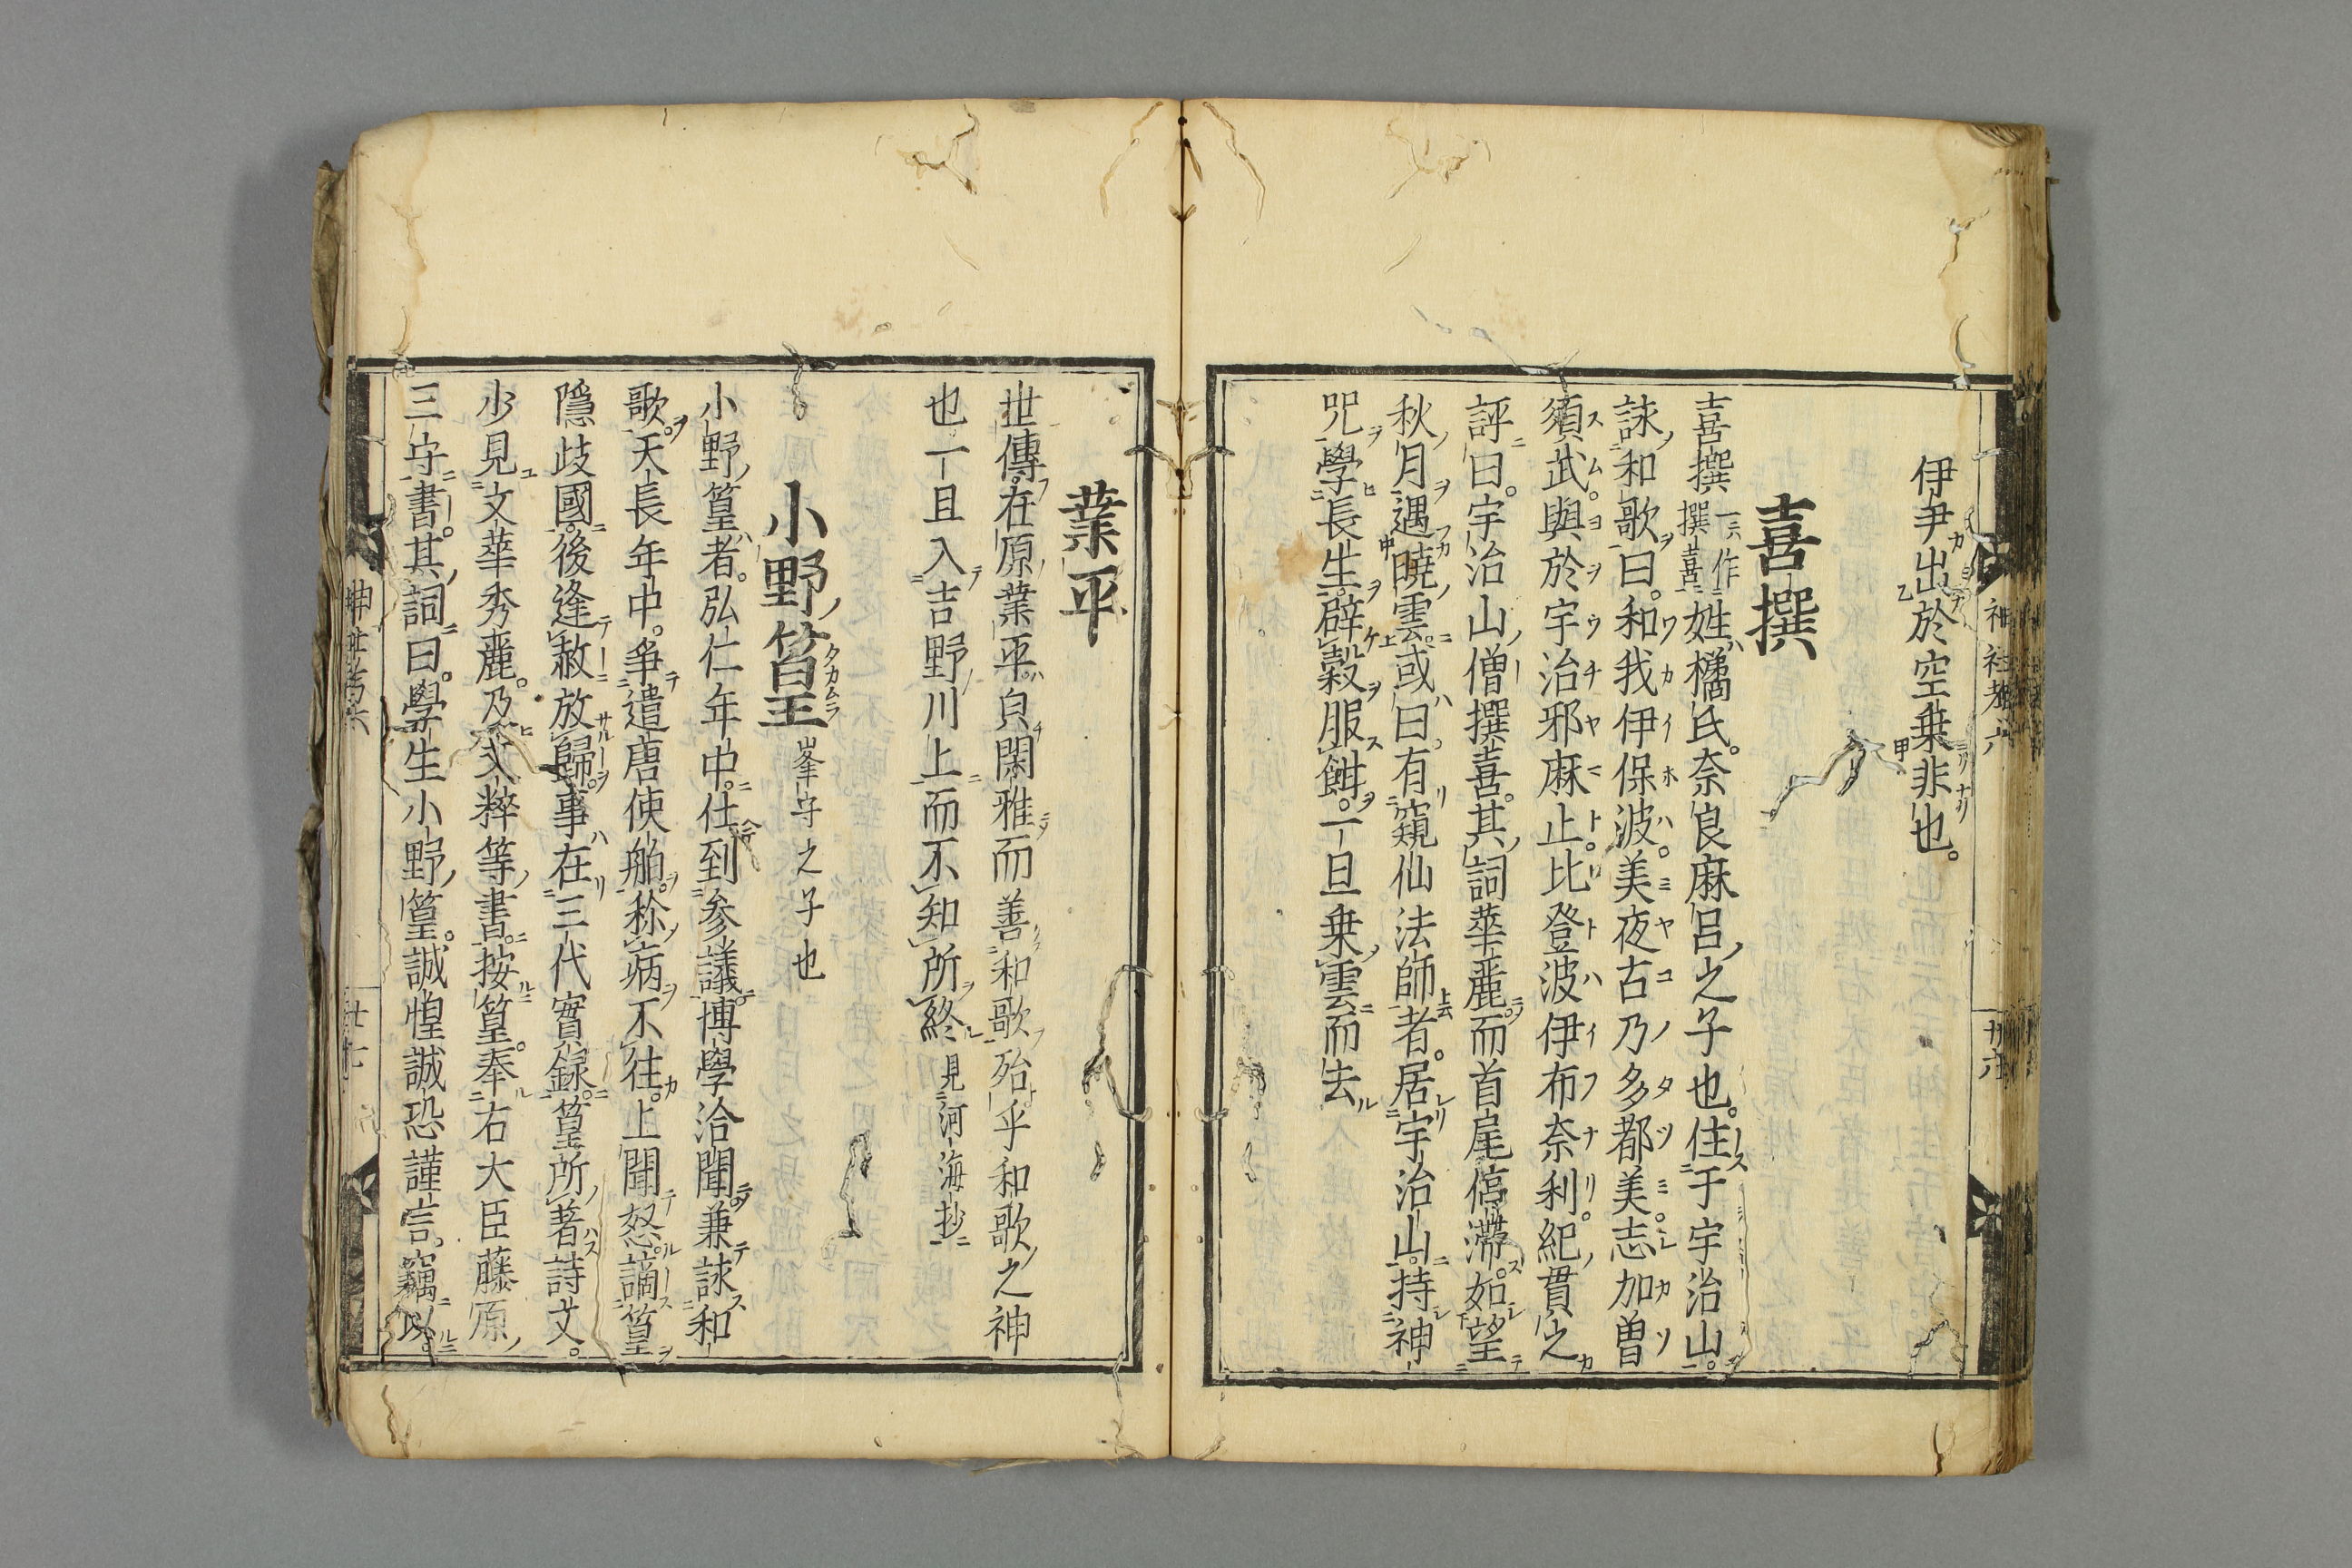 伊尹出於空桒非也。
喜撰
喜撰一云作撰喜姓橘氏。奈良麻呂之子也。住于宇治山。
詠和歌曰。和我伊保波。美夜古乃多都美。志加曽
須武。與於宇治邪麻止。比登波伊布奈利。紀貫之
評曰。宇治山僧撰喜。其詞華麗而首尾停滯。如望
秋月遇曉雲。或曰。有窺仙法師者。居宇治山。持神
咒學長生。辟穀服餌。一旦乗雲而去
神社考六
廿六
業平
世傳。在原業平。㒵閑雅而善和歌殆乎和歌之神
也一旦入吉野川上而不知所終見河海抄
小野篁タカムラ 峯守之子也
小野篁者。弘仁年中。仕到参議。博學洽聞兼詠和
歌。天長年中。爭遣唐使舶。称病不往。上聞怒。謫篁
隠歧國。後逢赦放歸。事在三代實録。篁所著詩文。
少見文華秀麗。乃文粹等書。按篁。奉右大臣藤原
三守書。其詞曰。學生小野篁。誠惶誠恐謹言。竊以。
神社考六
廿七